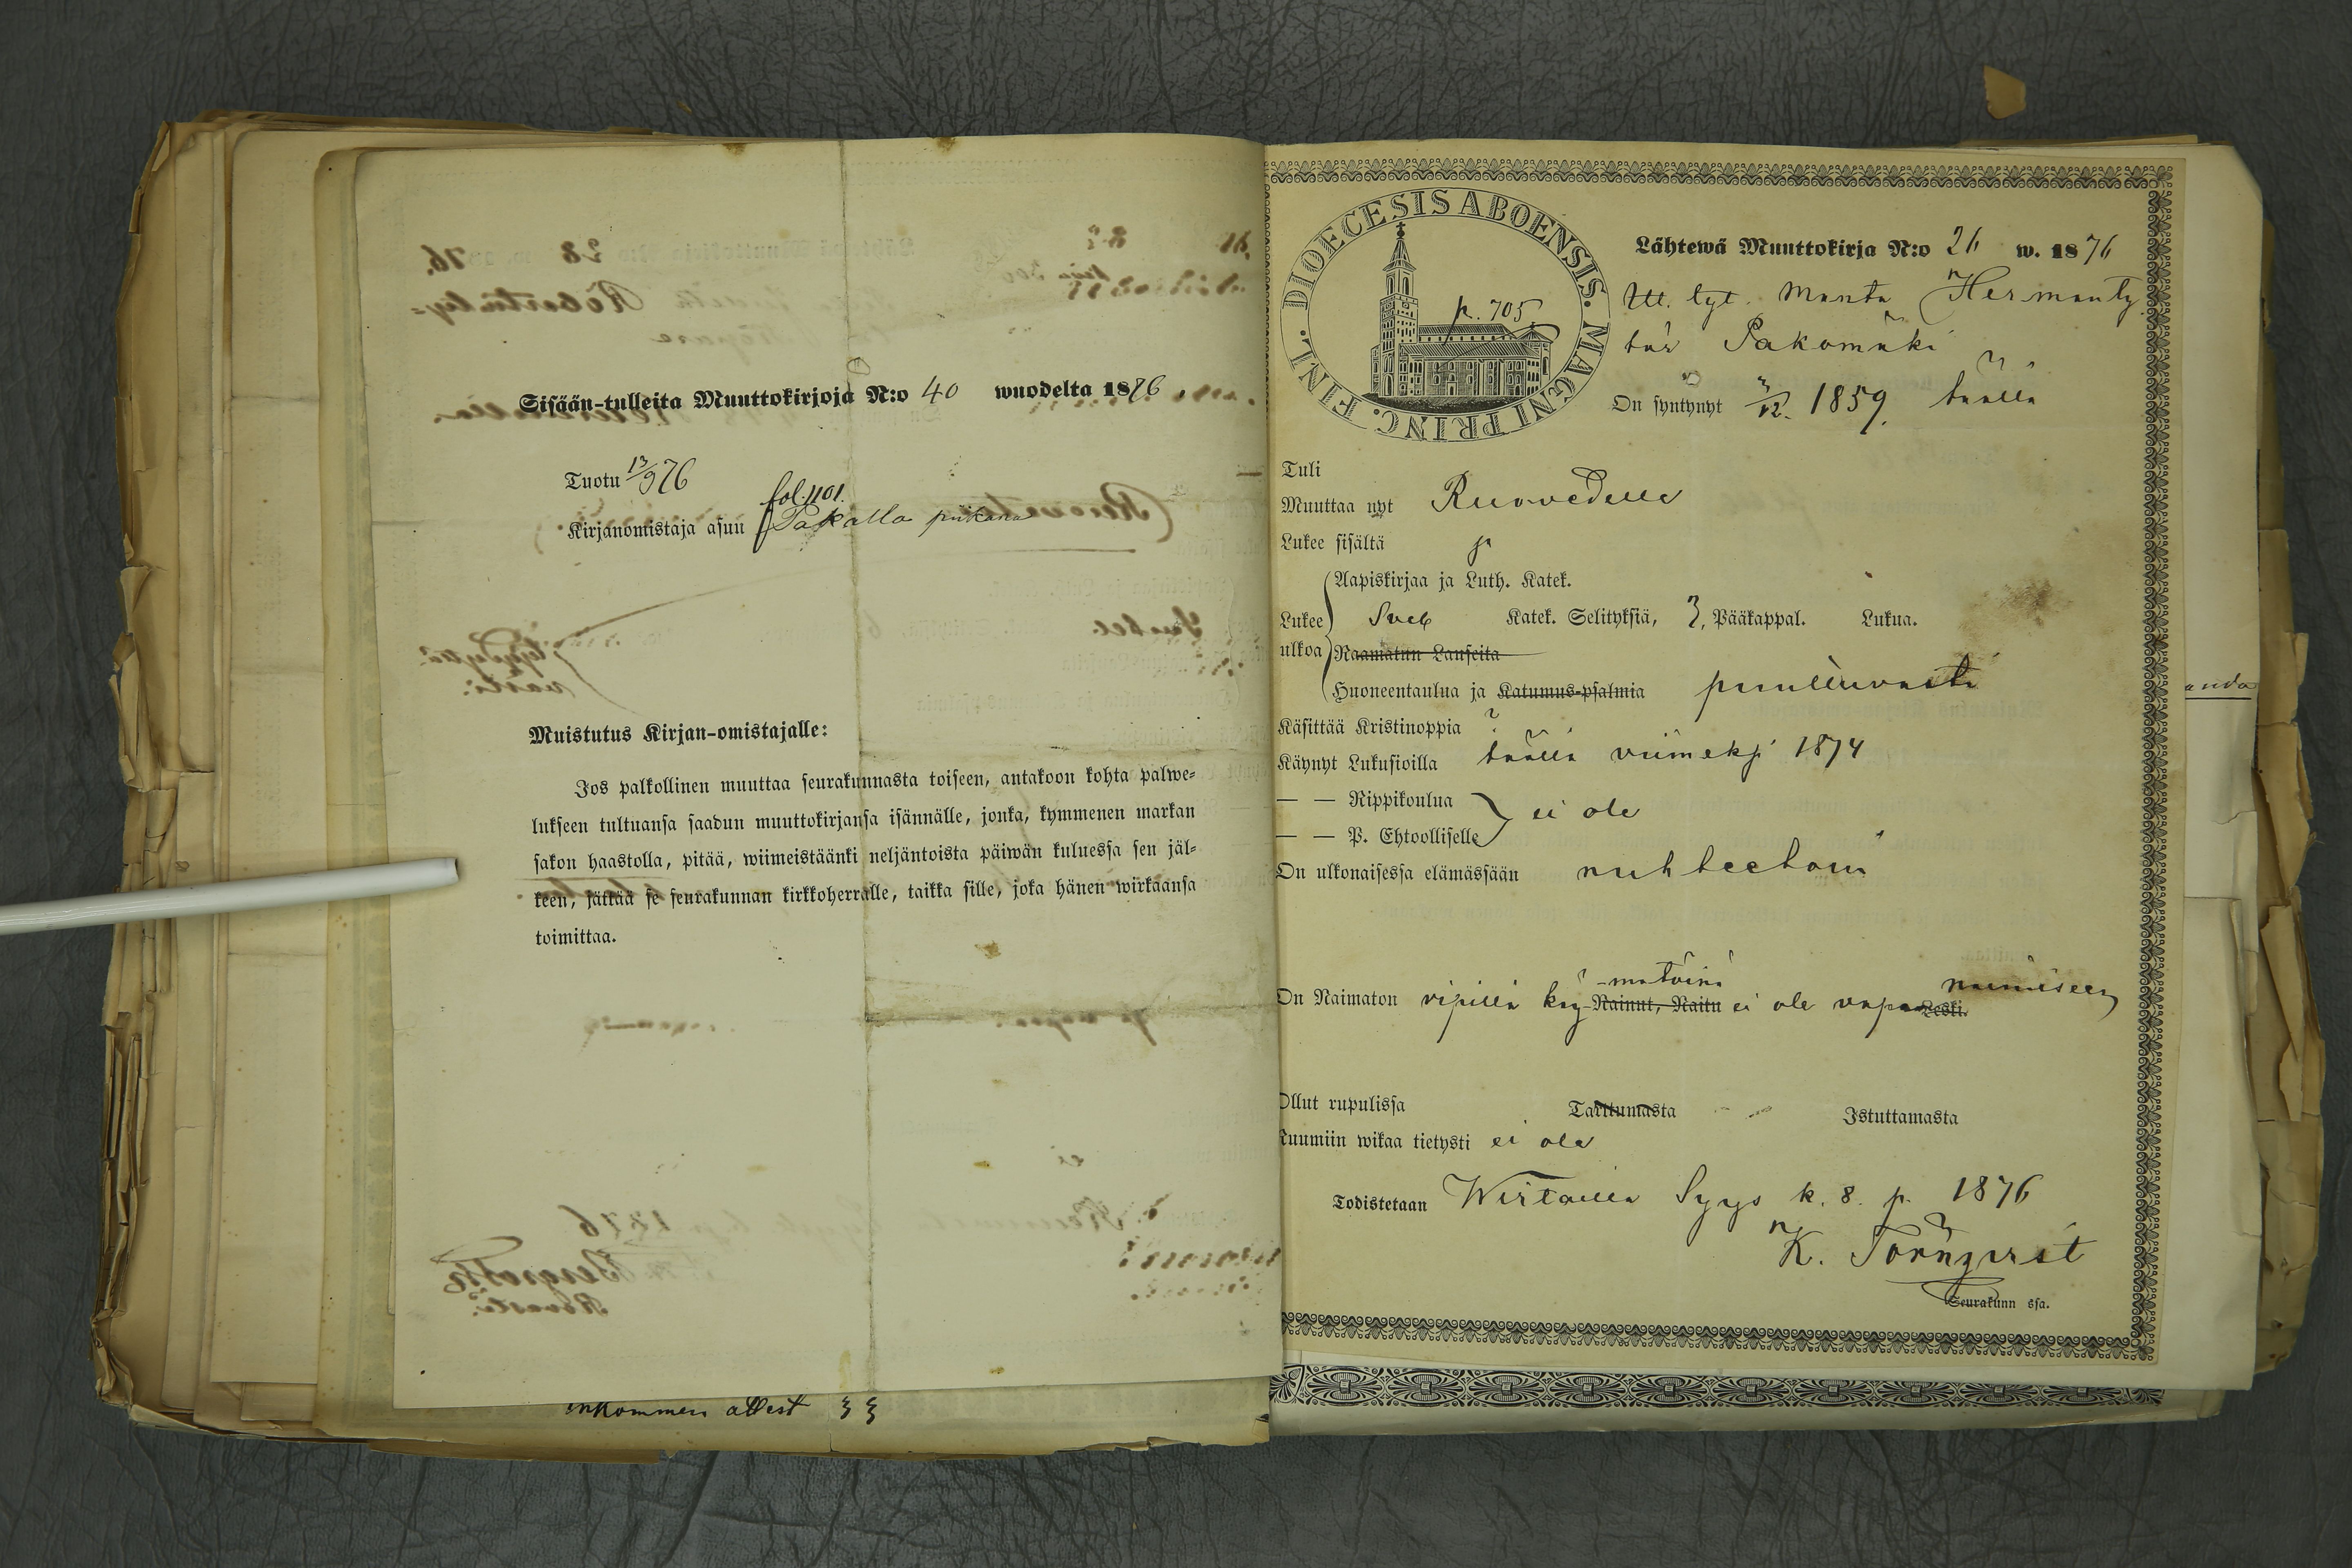 Sisään-tulleita Muuttokirjoja N:o 40 wuodelta 1876.
Tuotu 13/9 76
fol. 1101.
Kirjanomistaja asuu Pakalla piikana
Muistutus Kirjan-omistajalle:
Jos palkollinen muuttaa seurakunnasta toiseen, antakoon kohta palwe-
lukseen tultuansa saadun muuttokirjansa isännälle, jonka, kymmenen markan
sakon haastolla, pitää, wiimeistäänki neljäntoista päiwän kuluessa sen jäl-
keen, jättää se seurakunnan kirkkoherralle, taikka sille, joka hänen wirkaansa
toimittaa.
inkommen attest
DIOECESIS ABOENSIS. MAGNI PRINC. FINL.
p. 705
Lähtewä Muuttokirja N:o 26 w. 1876
Itt. tyt. Manta Hermanty
tär Pakomäki
On syntynyt 3/12. 1859. täällä
Tuli
Muuttaa nyt Ruovedelle
Lukee sisältä ja
Aapiskirjaa ja Luth. Katek.
Lukee ulkoa Sveb Katek. Selityksiä, 3, Pääkappal. Lukua.
Raamatun Lauseita
Huoneentaulua ja Katumus-psalmia puolluvasti
Käsittää Kristinoppia
Käynyt Lukusioilla täällä viimeksi 1874
— — Rippikoulua
— — P. Ehtoolliselle ei ole
On ulkonaisessa elämässään nuhteetoin
On Naimaton ripillä käy-mätöinä Nainut, Naitu ei ole vapa Leski. naimiseen
Ollut rupulissa Tarttumasta Istuttamasta
Ruumiin wikaa tietysti ei ole
Todistetaan Wirtailla Syys k. 8. p. 1876
K. Törnqvist
Seurakunn ssa.